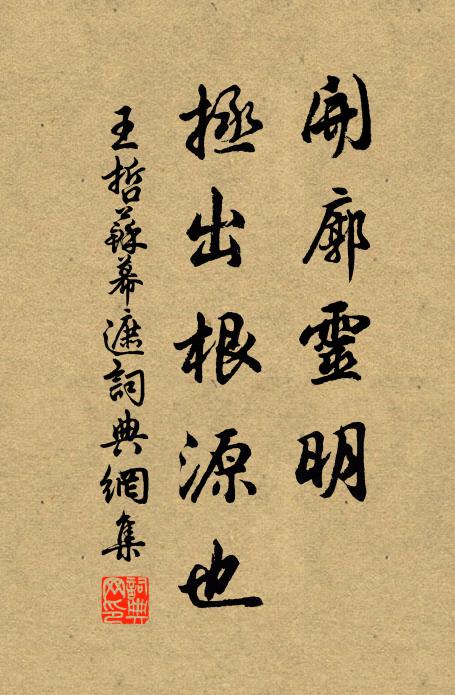 開廓靈明
拯出根源也
王哲蘇幕遮詞典網集
詞典网印